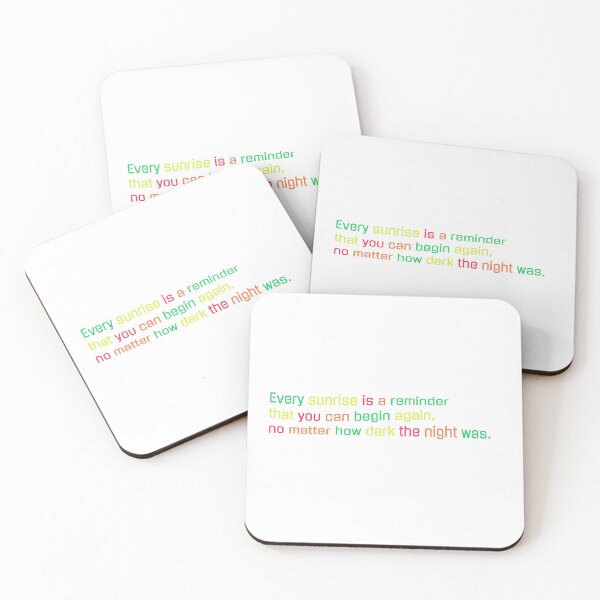 Every sunrise is a reminder
that you can again,
no matter night
Every sunrise is a reminder
that you can begin again,
no matter how dark the night was.
Every sunrise is a reminder
that you can begin again,
no matter how dark the night was.
Every sunrise is a reminder
that you can begin again,
no matter how dark the night was.